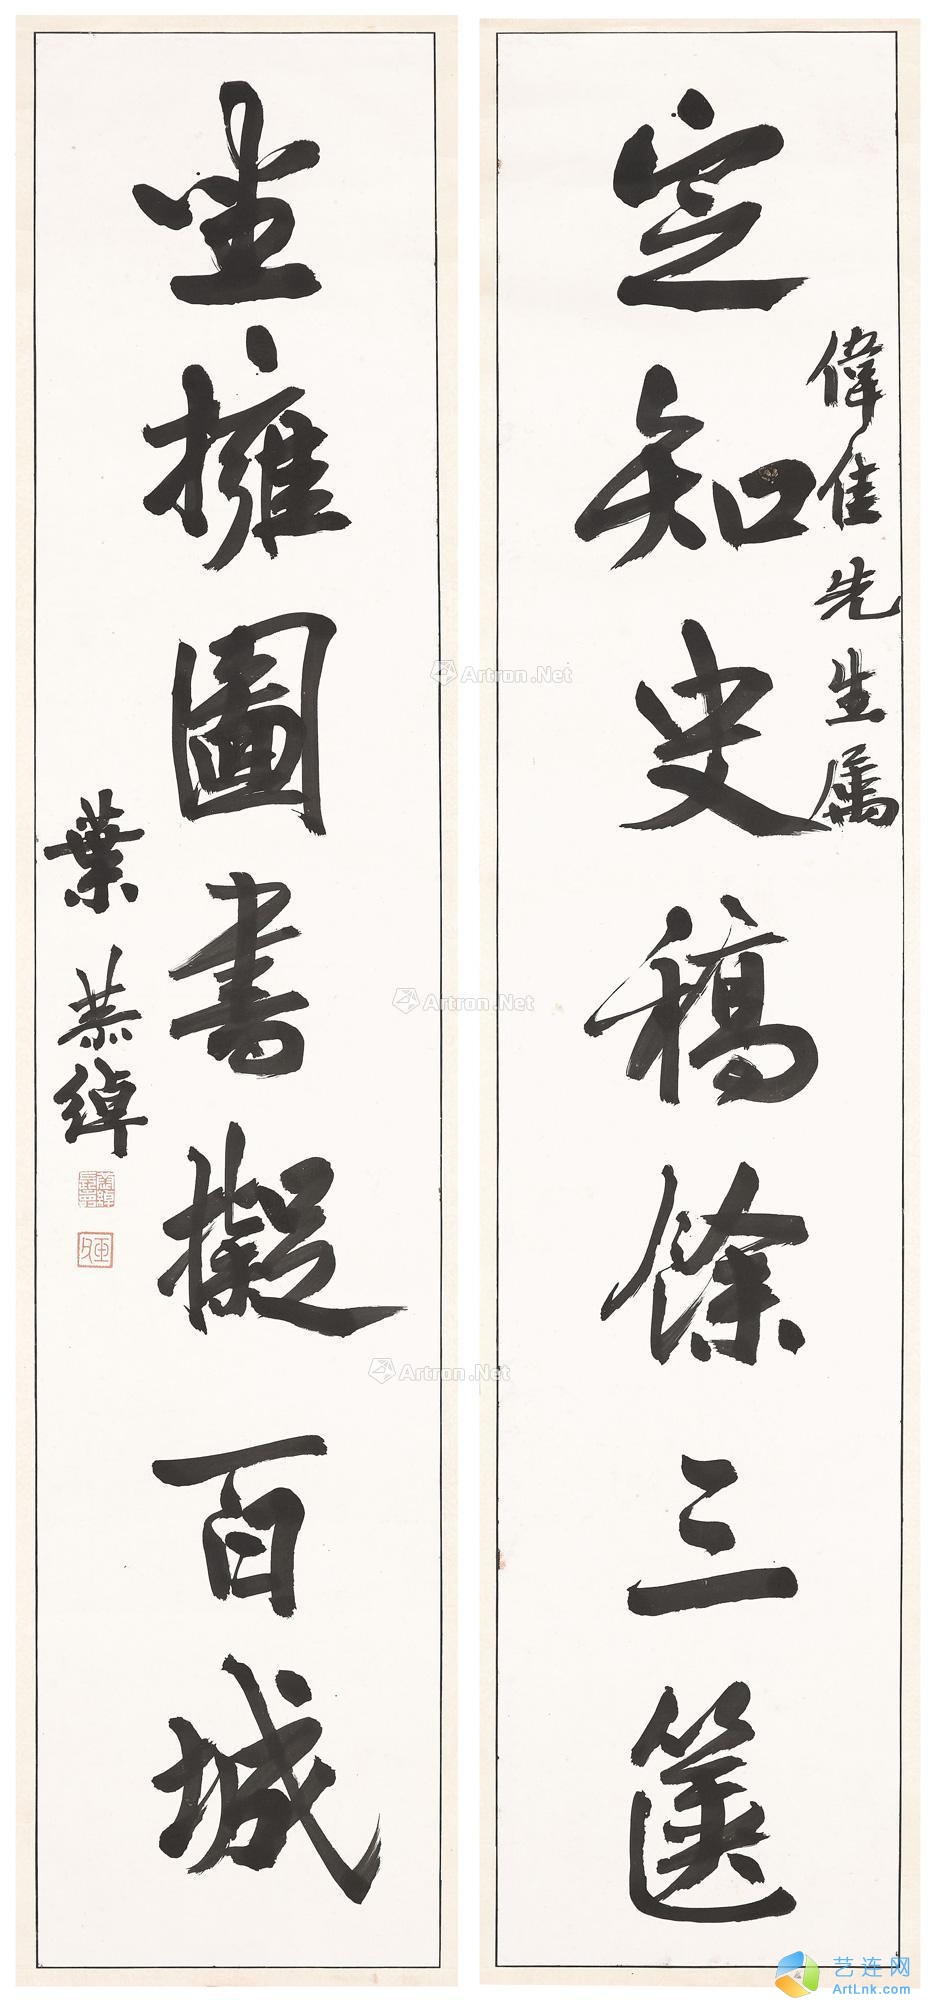 定知史稿餘三篋
偉佳先生屬
坐擁圖書擬百城
葉恭綽
Artron.Net
Artron.Net
Artron.Net
艺连网
ArtLnk.com